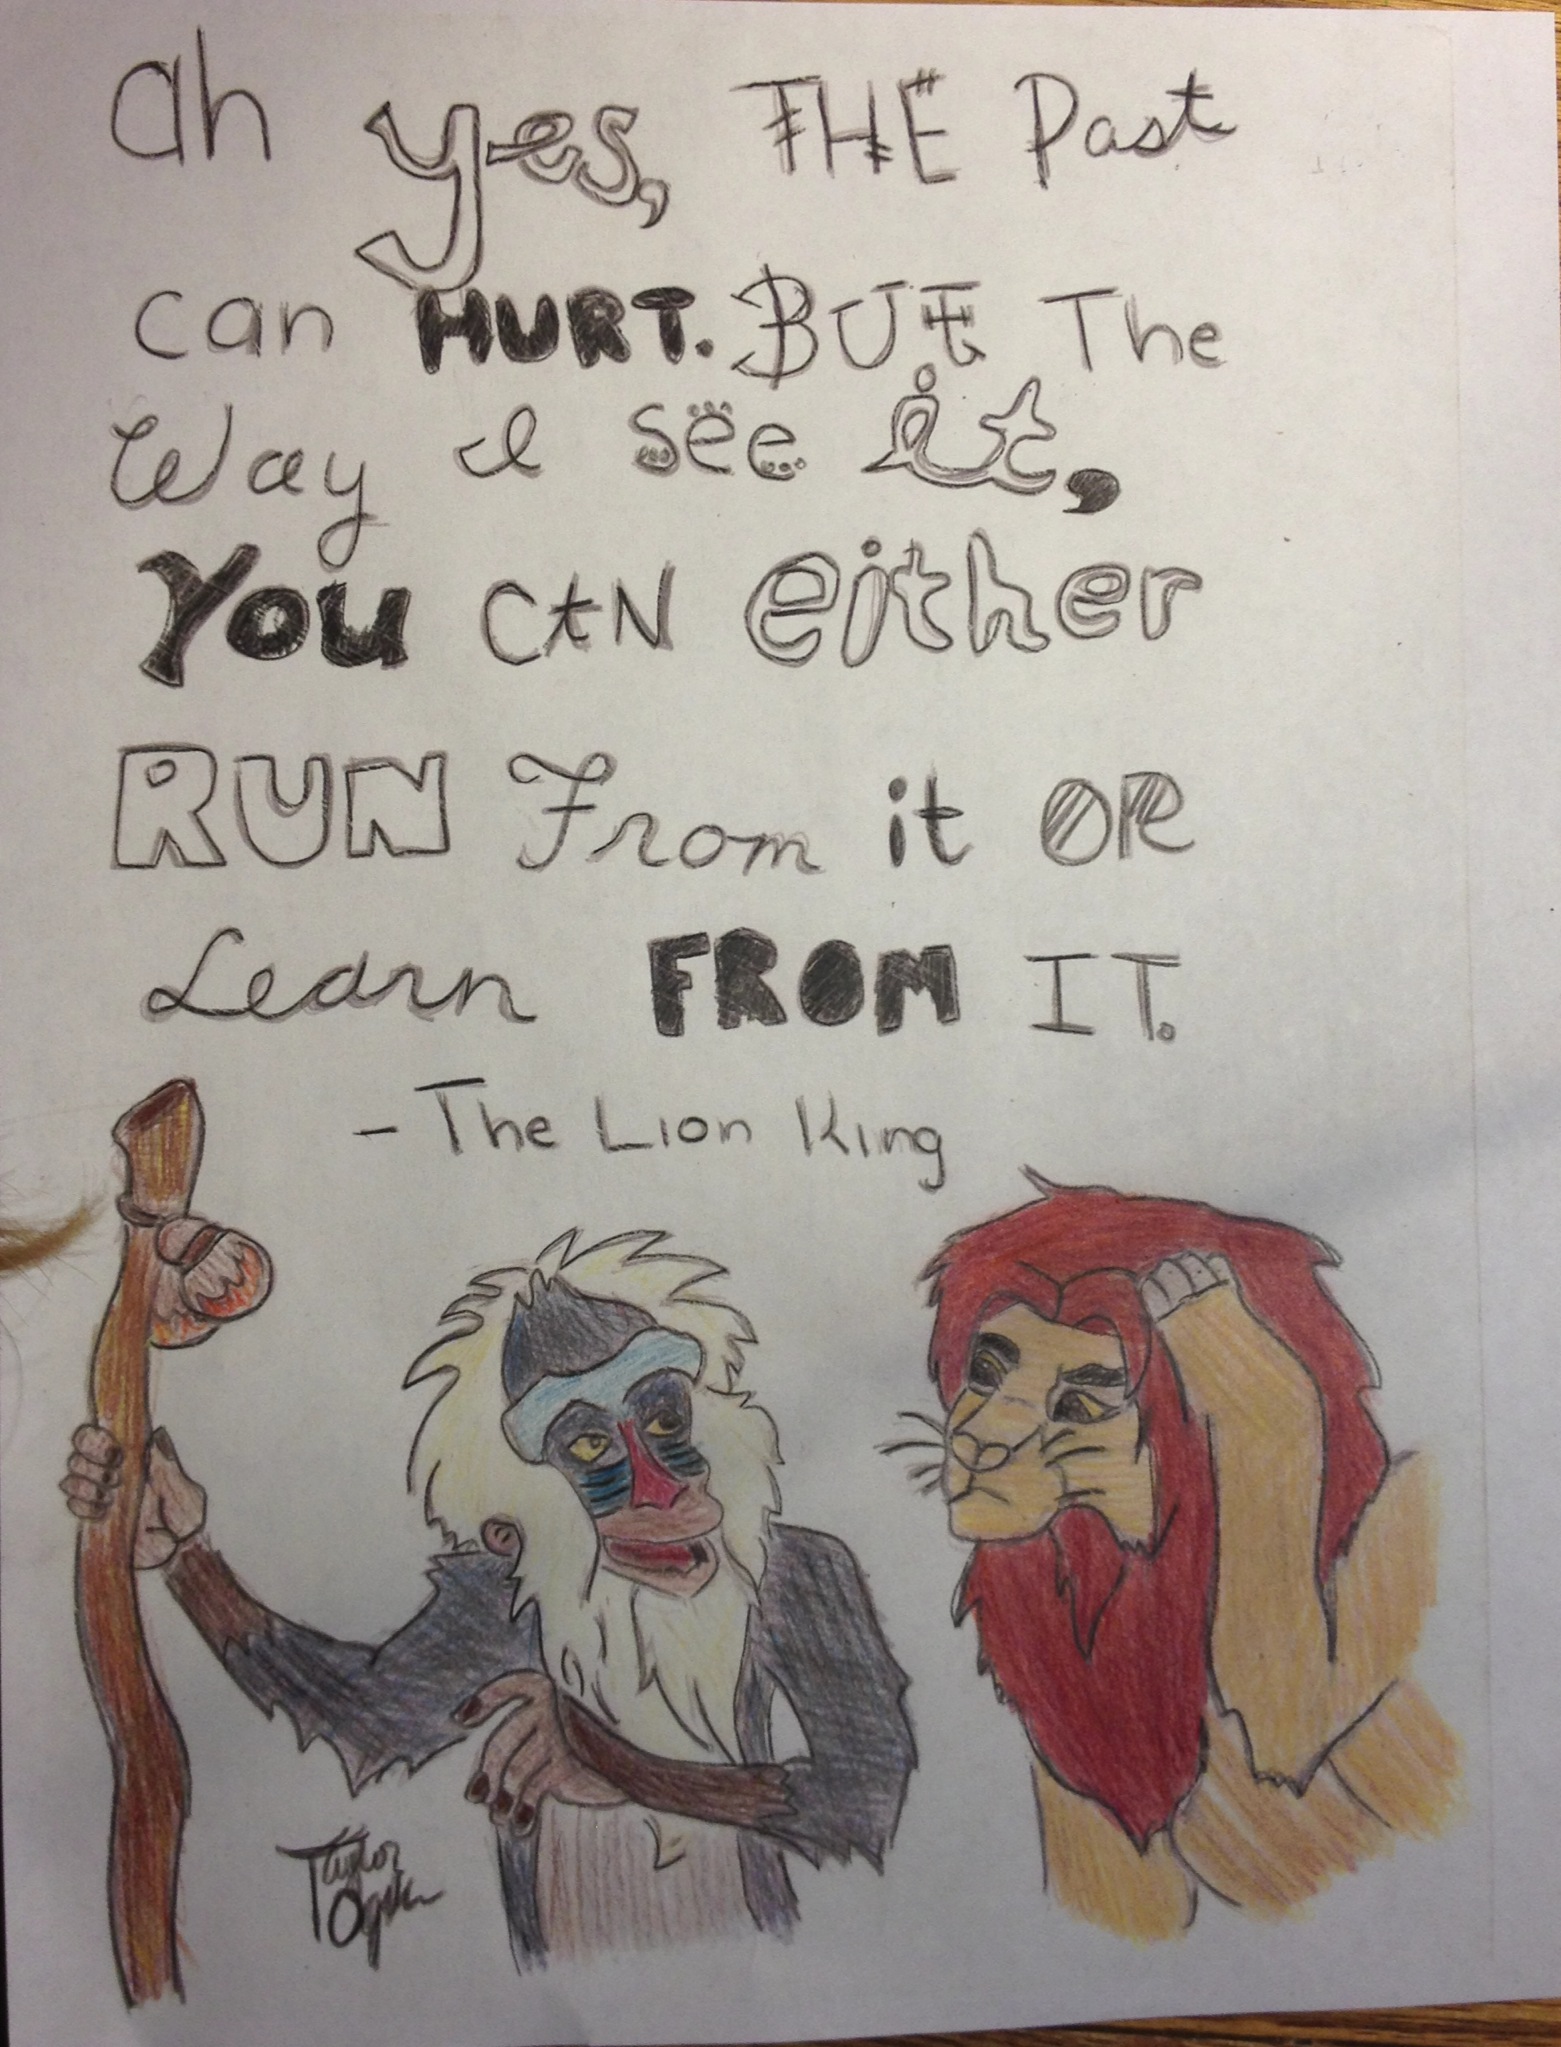 ah yes, THE Past
can HURT. BUT The
Way I see it,
YOU CAN either
RUN From it OR
Learn FROM IT.
- The Lion King
Taylor
Ogden